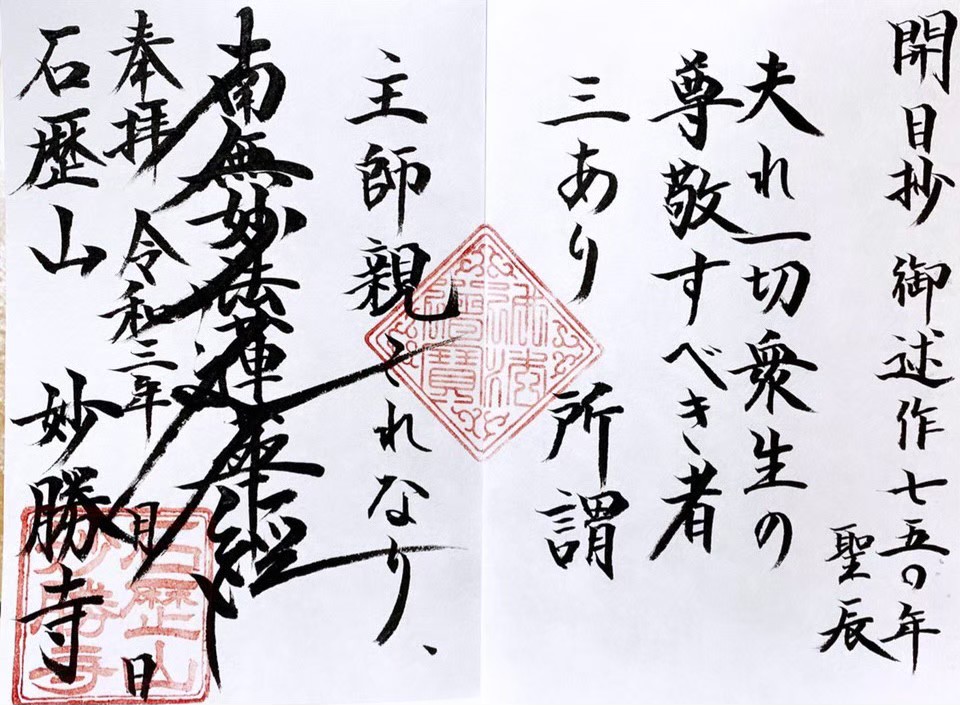 開目抄 御述作七五〇年
聖辰
夫れ一切衆生の
尊敬すべき者
三あり 所謂
主師親これなり、
南無妙法蓮華経
奉拝 令和三年 月 日
石歴山 妙勝寺
石歴山
妙勝寺